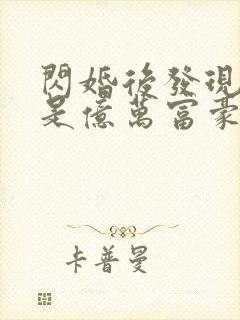 閃婚後發現
是億萬富豪
卡普曼